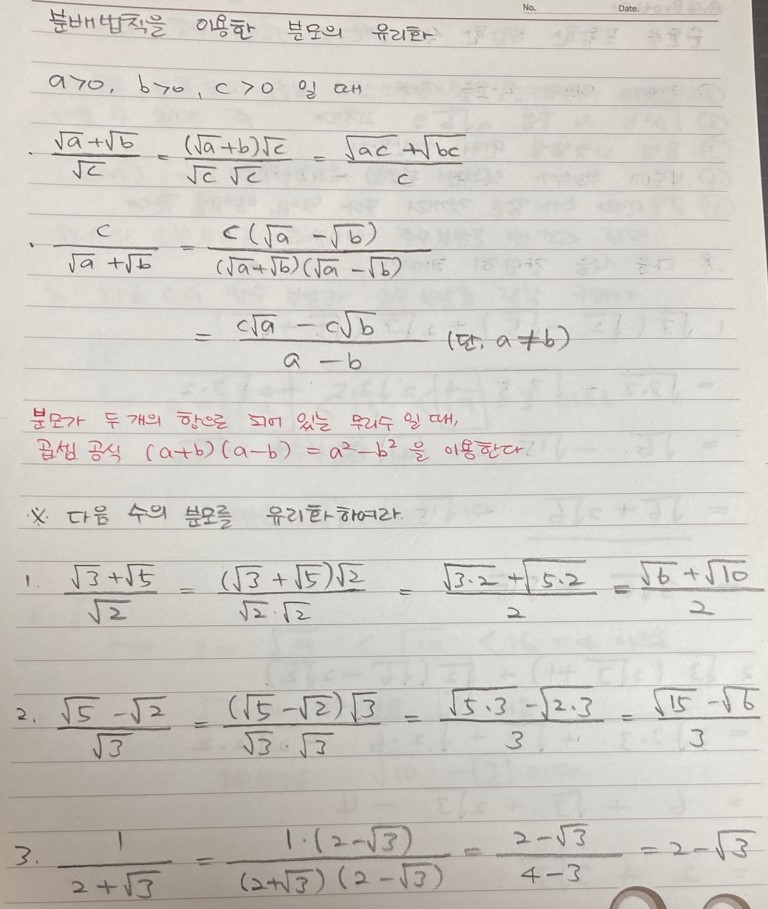 No. Date.
분배법칙을 이용한 분모의 유리화
a>0, b>0, c>0 일 때
· (√a+√b)/√c = (√a+b)√c/(√c √c) = (√ac+√bc)/c
· c/(√a+√b) = c(√a-√b)/((√a+√b)(√a-√b))
= (c√a-c√b)/(a-b) (단, a≠b)
분모가 두 개의 항으로 되어 있는 무리수 일 때,
곱셈 공식 (a+b)(a-b) = a²-b² 을 이용한다.
※ 다음 수의 분모를 유리화하여라.
1. (√3+√5)/√2 = (√3+√5)√2/(√2·√2) = (√3·2+√5·2)/2 = (√6+√10)/2
2. (√5-√2)/√3 = (√5-√2)√3/(√3·√3) = (√5·3-√2·3)/3 = (√15-√6)/3
3. 1/(2+√3) = 1·(2-√3)/((2+√3)(2-√3)) = (2-√3)/(4-3) = 2-√3